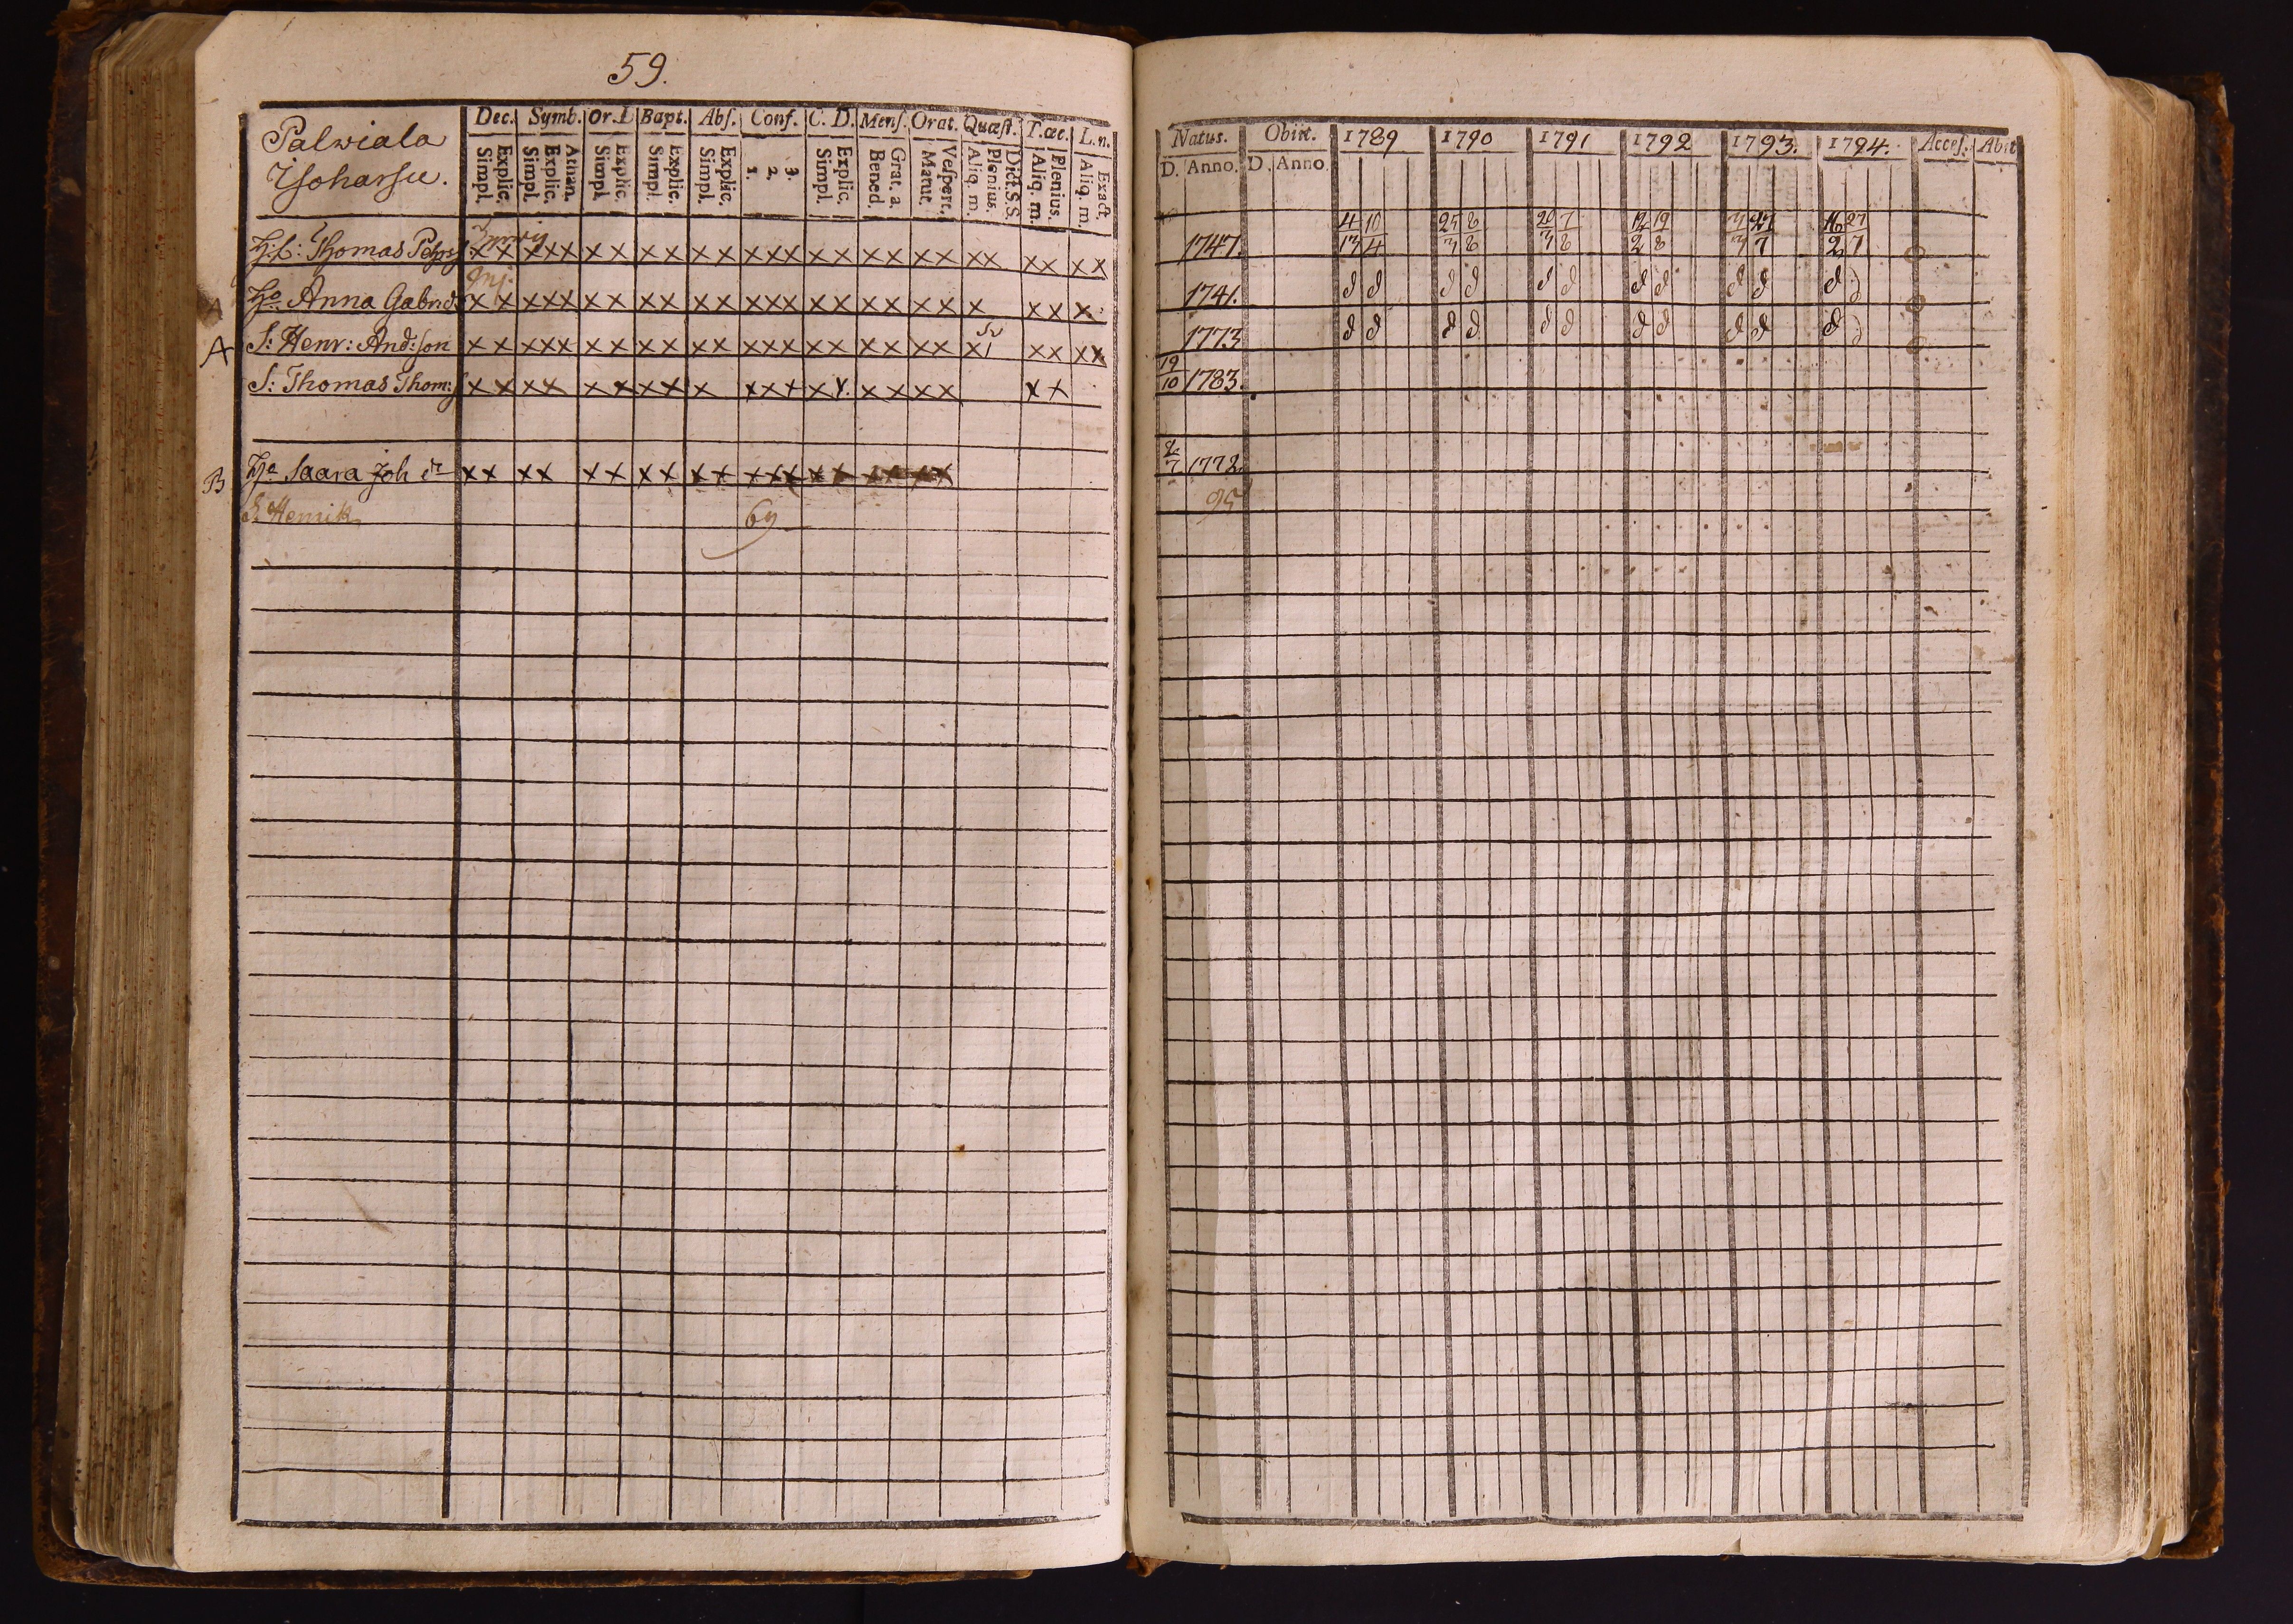 59.
Palwiala
Isoharsu.
Dec. Symb. Or. D Bapt. Abs. Conf. C. D. Mens. Orat. Quæst. T. œc. L. n.
Simpl. Explic. Simpl. Explic. Athan. Simpl. Explic. Simpl. Explic. Simpl. Explic. 1. 2. 3. Simpl. Explic. Bened. Grat. a. Matut. Vespert. Aliq. m. Plenius. Dict. S. S. Aliq. m. Plenius. Aliq. m. Exact.
Thomas x x x x x x x x x x x x x x x x x x x x x x x x x x
A H:a Anna Gabr:dr x x x x x x x x x x x x x x x x x x x x x x x x
A S: Henr: And:son x x x x x x x x x x x x x x x x x x x x x x x x x
S: Thomas Thom:s x x x x x x x x x x x x x x x x x x x x x
B H:a Saara Joh dr x x x x x x x x x x x x x x x x x x x
S. Henrik 69
Natus. Obiit. 1789 1790 1791 1792 1793. 1794. Acces. Abit
D. Anno. D. Anno.
4 10 25 8 20 7 12 19 27 16 27
1747. 13 4 3 8 3 8 2 8 3 7 2 7
1741. d d d d d d d d d d d d
1773 d d d d d d d d d d d d
19
10 1783.
2
7 1772.
95